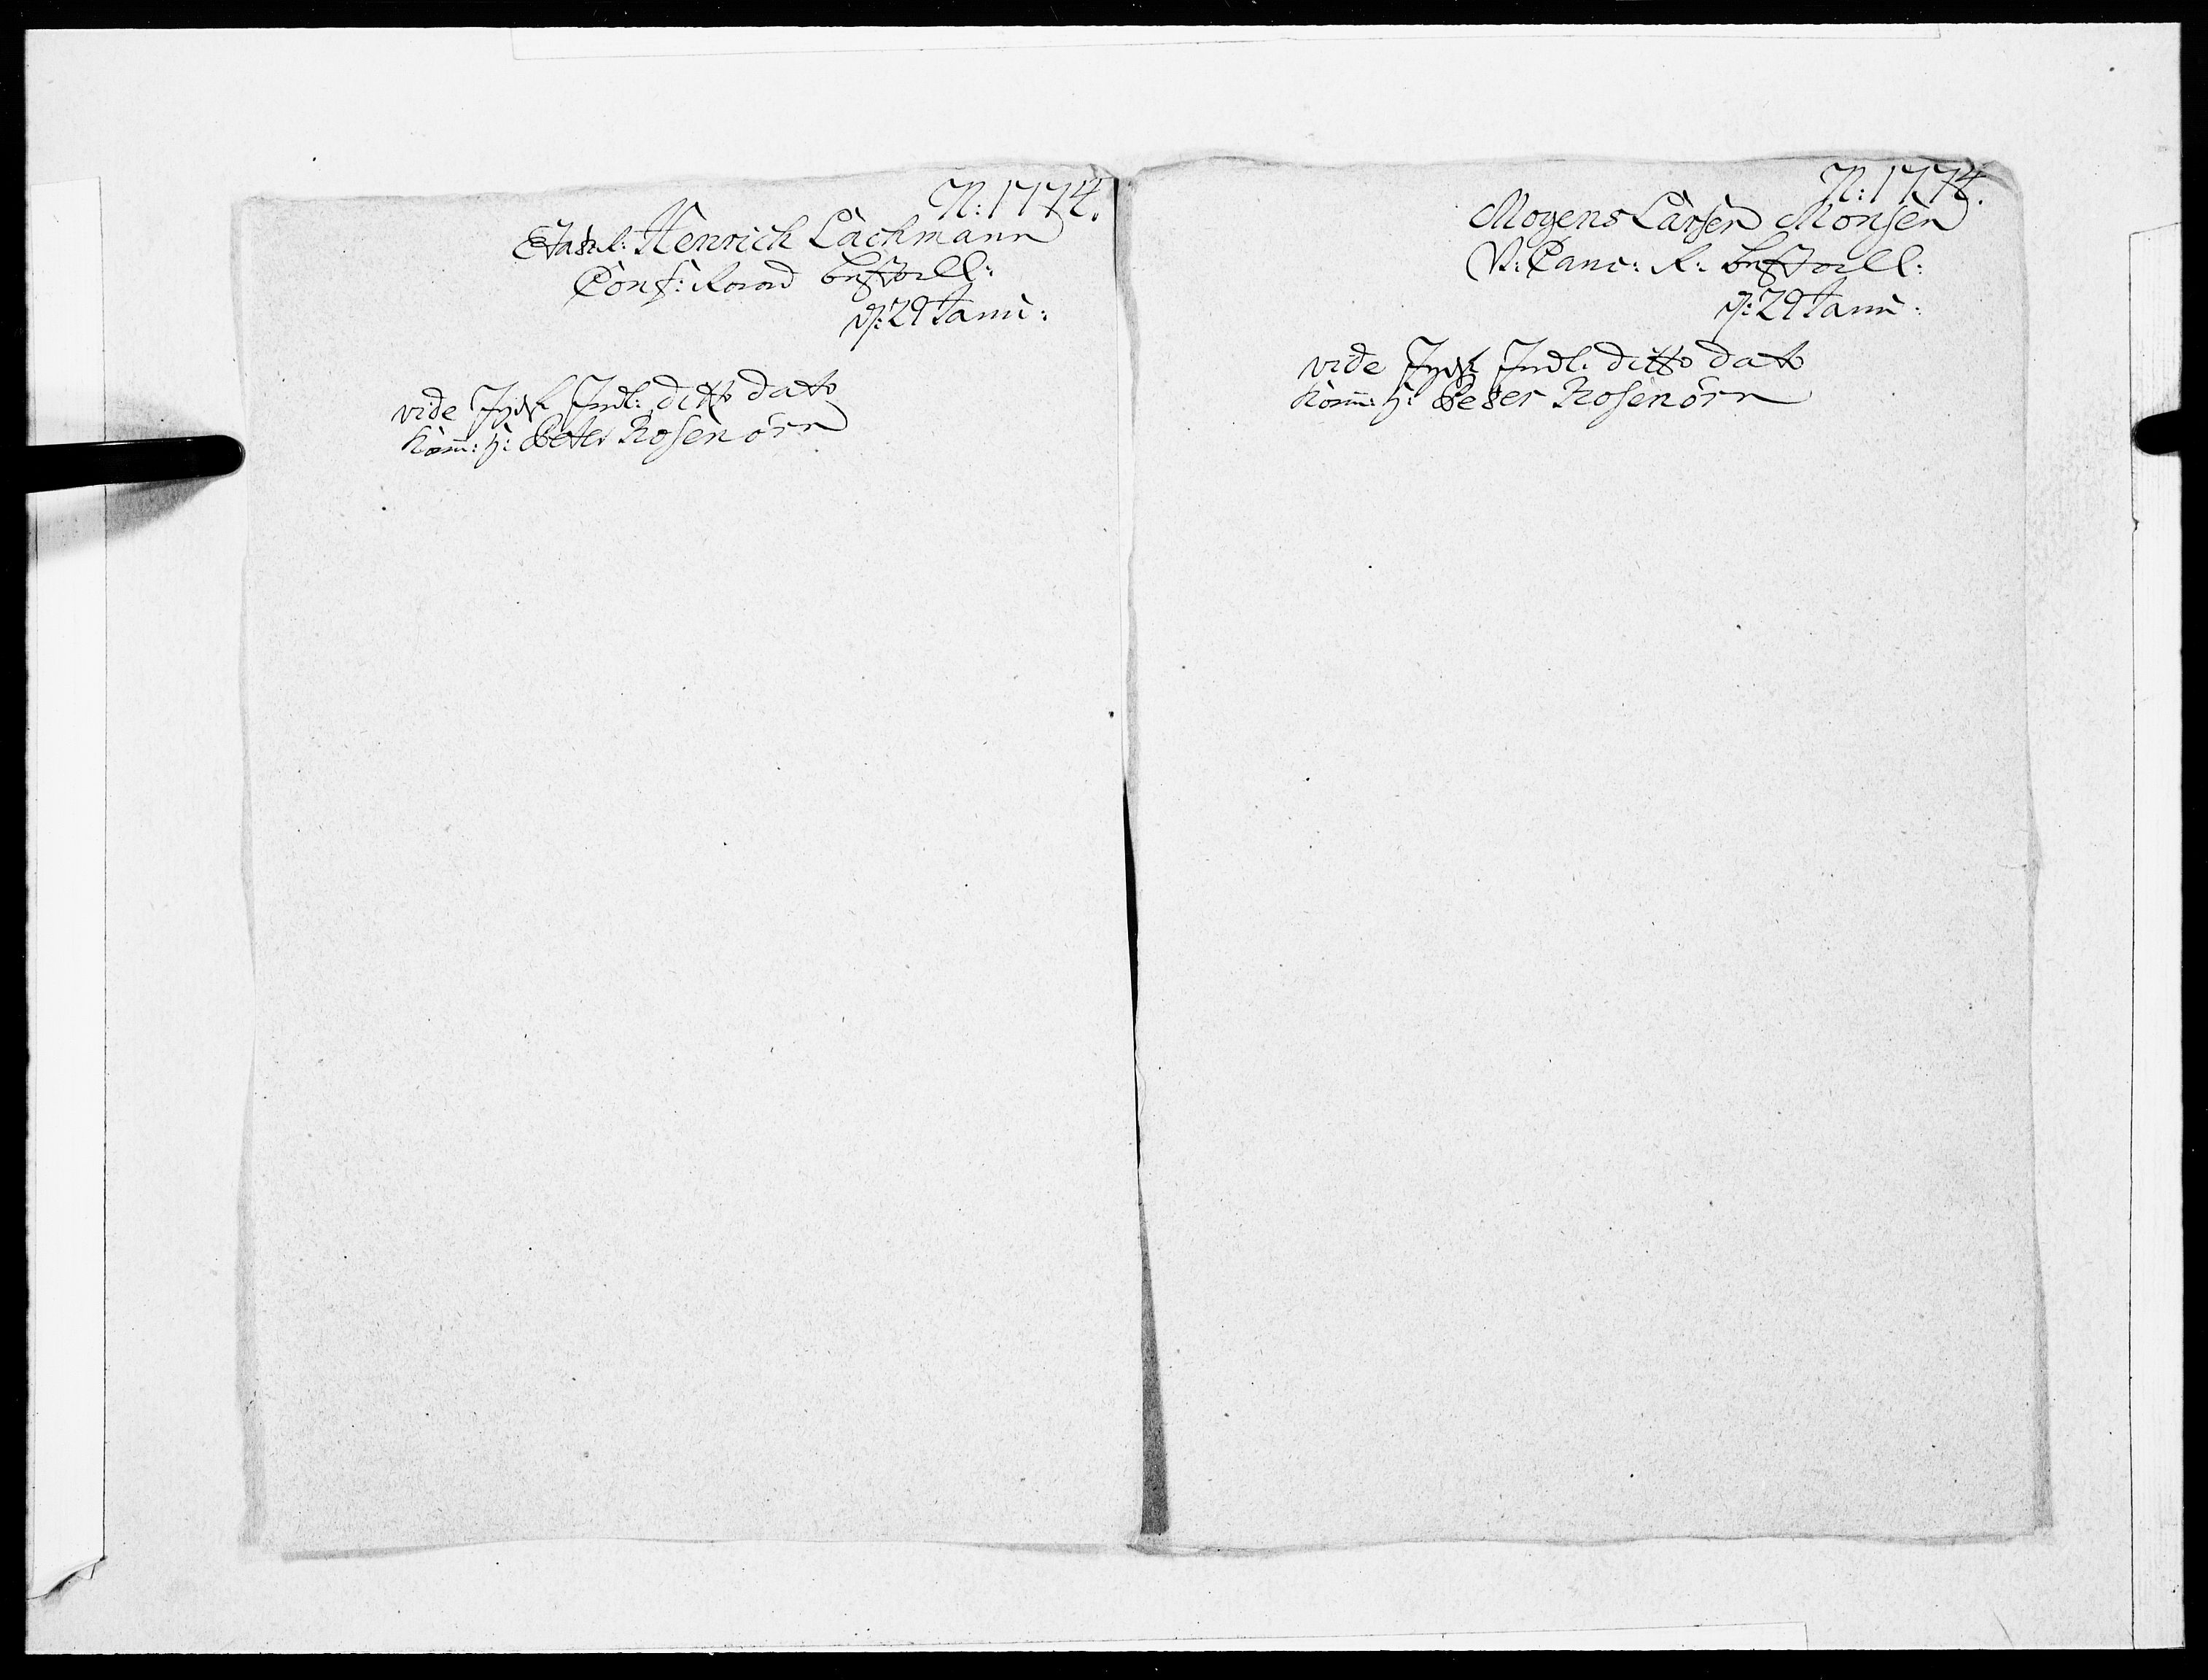 N: 1774.
Etasr: Henrich Lachmann
Conf: Raad bestall:
d: 29 Janu:
vide Jydsk Indl: ditto dato
Kam: H: Peter Rosenörn
N: 1774.
Mogens Larsen Monsen
V: Canc: R: bestall:
d: 29 Janu:
vide Jydsk Indl: ditto dato
Kam: H: Peter Rosenörn